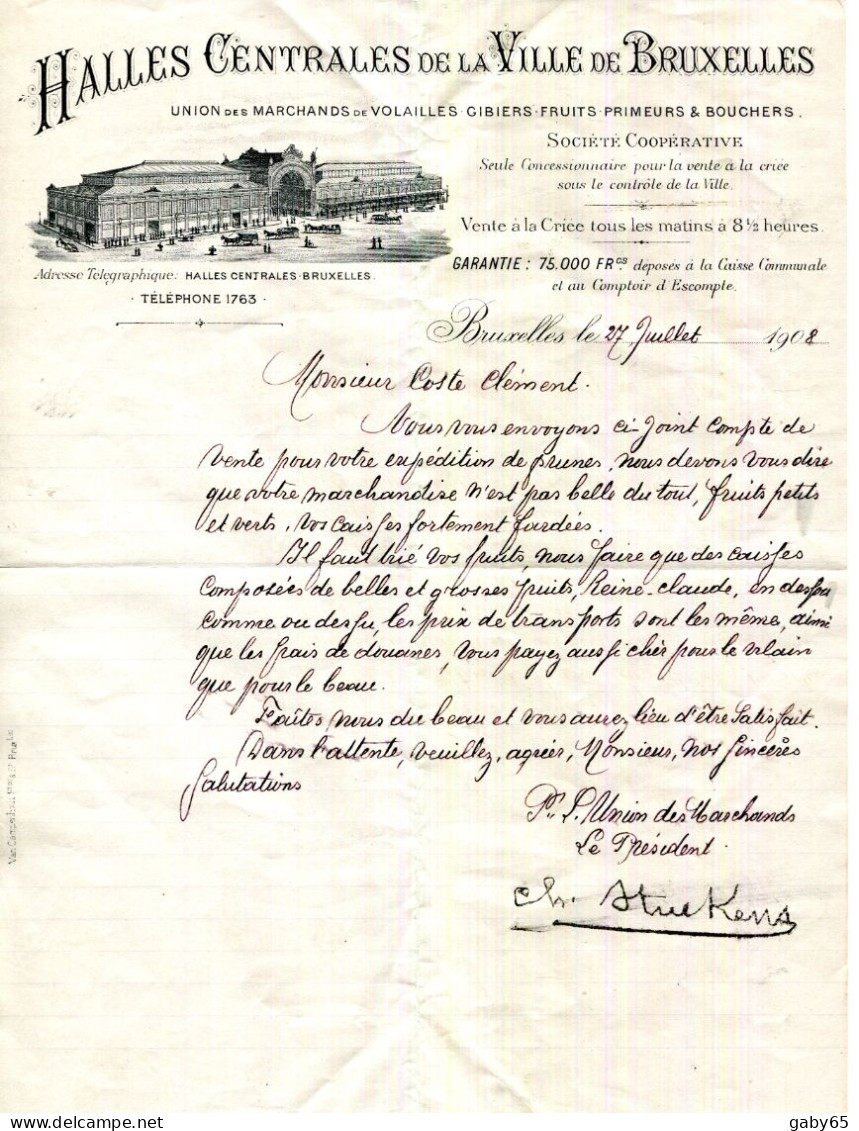 HALLES CENTRALES DE LA VILLE DE BRUXELLES
UNION DES MARCHANDS DE VOLAILLES·GIBIERS·FRUITS·PRIMEURS & BOUCHERS.
SOCIÉTÉ COOPÉRATIVE
Seule Concessionnaire pour la vente à la criée
sous le contrôle de la Ville.
Vente à la Criée tous les matins à 8½ heures.
GARANTIE: 75.000 FRCS déposés à la Caisse Communale
et au Comptoir d'Escompte.
Adresse Télégraphique: HALLES CENTRALES·BRUXELLES.
· TÉLÉPHONE 1763 ·
Bruxelles le 27 Juillet 1908
Monsieur Coste Clément.
Nous vous envoyons ci-Joint compte de
vente pour votre expédition de prunes, nous devons vous dire
que votre marchandise n'est pas belle du tout, fruits petits
et verts, vos caisses fortement fardées.
Il faut trié vos fruits, nous faire que des caisses
composées de belles et grosses fruits, Reine-claude, en dessou
comme ou dessu, les prix de transports sont les même, ainsi
que les frais de douanes, vous payez aussi chèr pour le vilain
que pour le beau.
Faîtes nous du beau et vous aurez lieu d'être Satisfait.
Dans l'attente, veuillez, agréer, Monsieur, nos Sincères
Salutations
Pr L'Union des Marchands
Le Président.
Ch. Stuckens
Bruxelles
gaby65